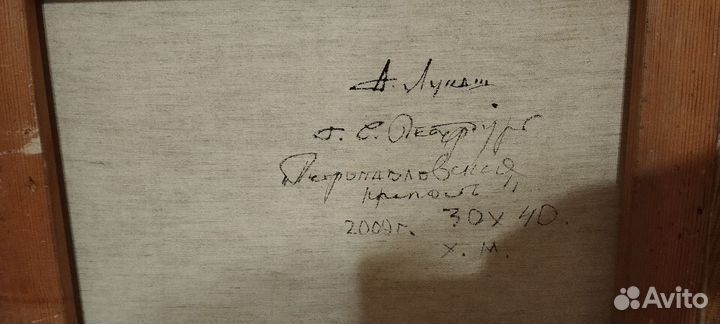 А. Лукаш
г. С. Петербург
"Петропавловская
крепость"
2009г. 30х40.
х.м.
Avito